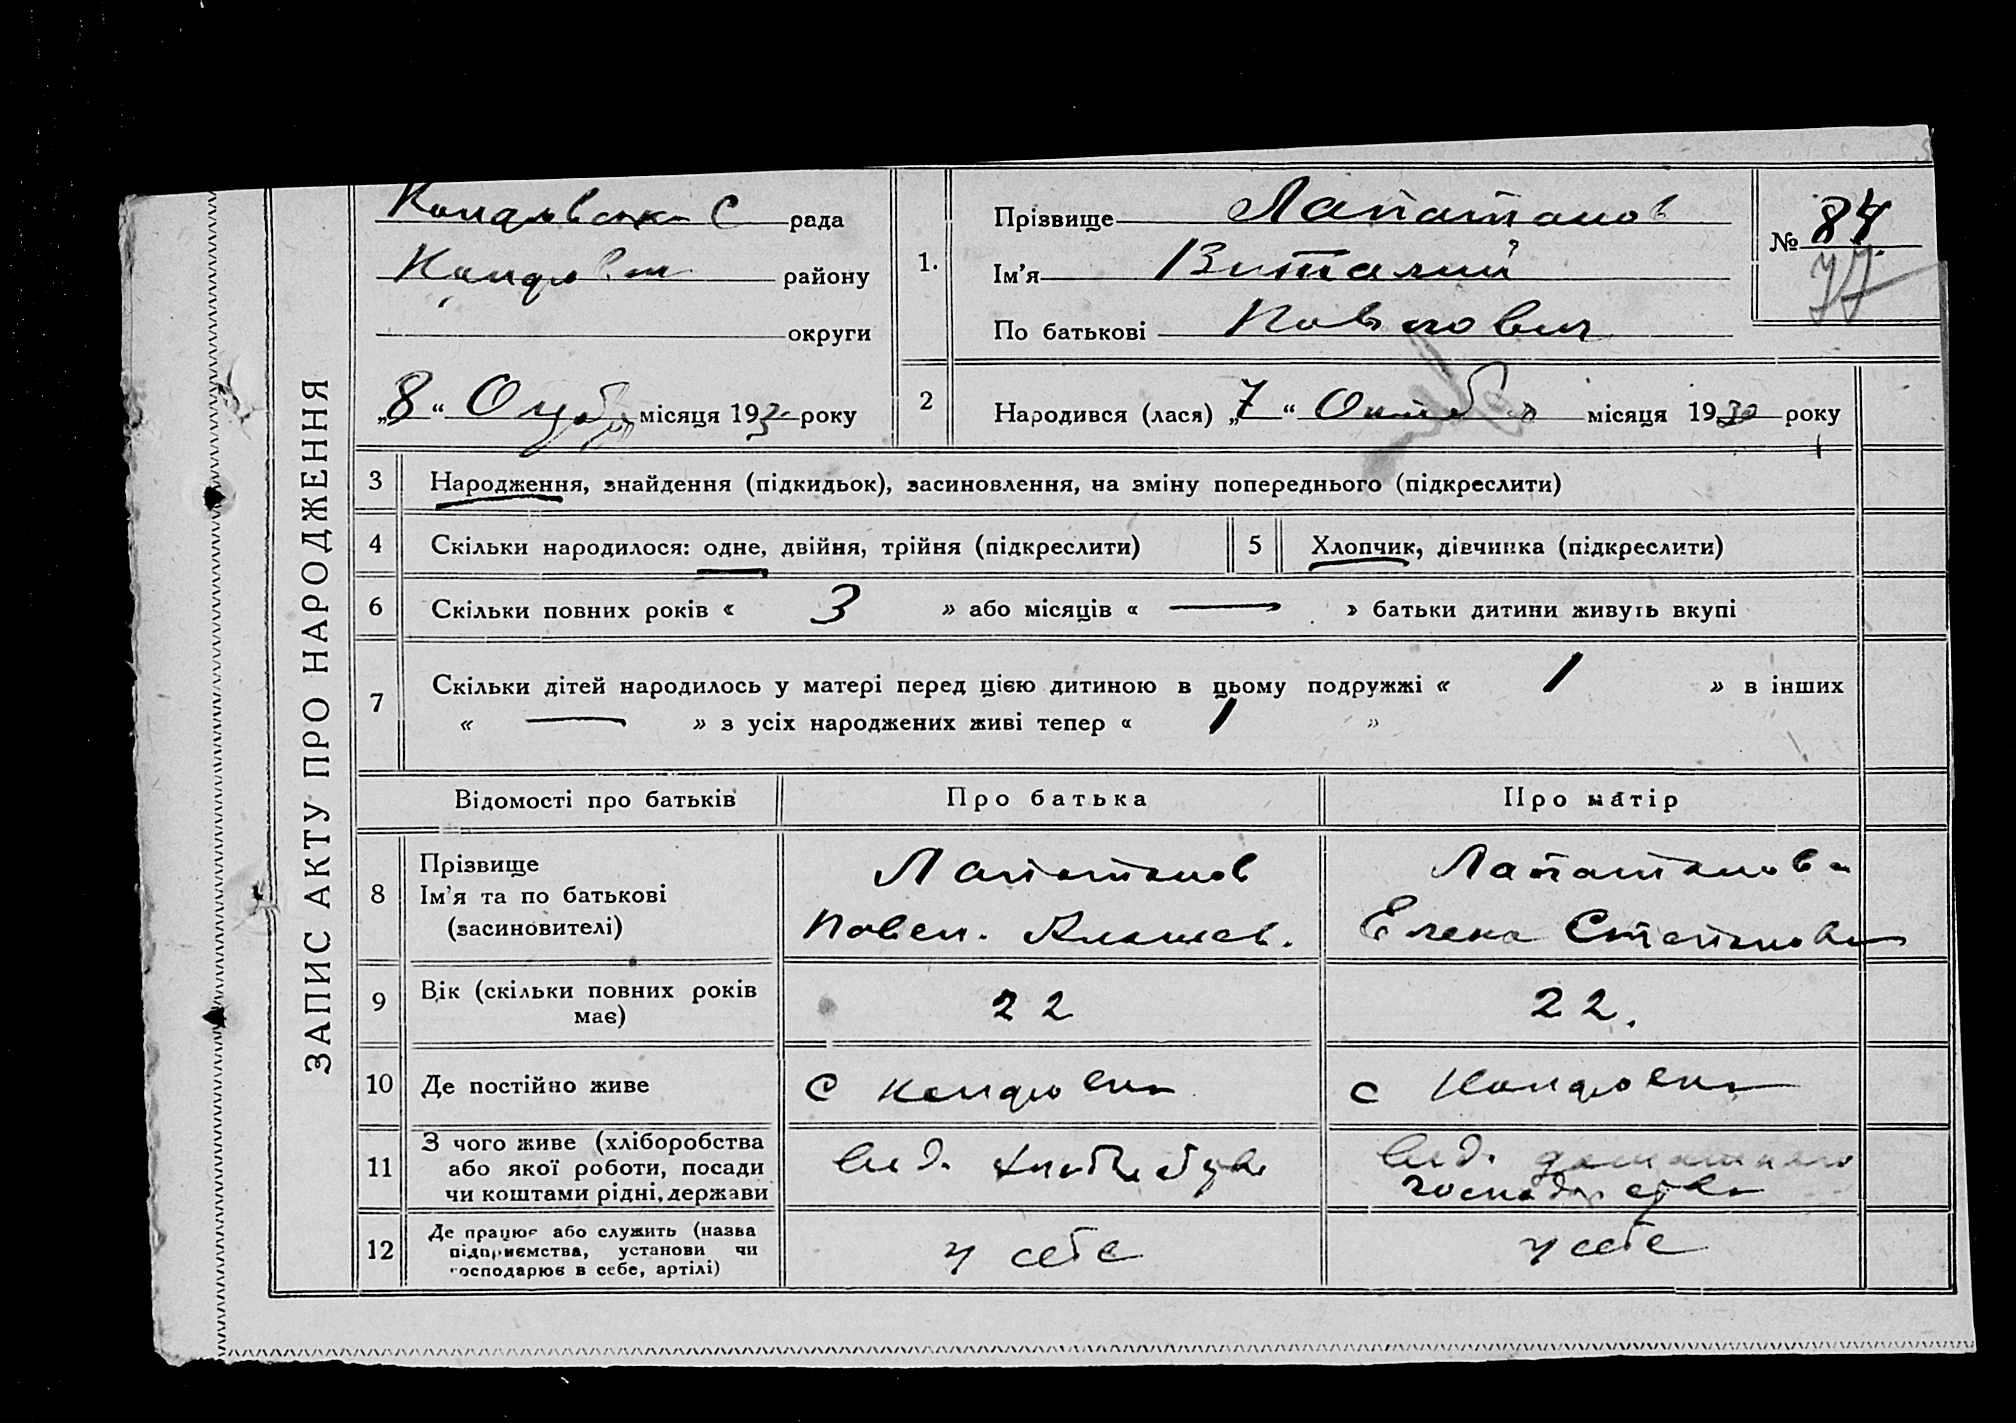 ЗАПИС АКТУ ПРО НАРОДЖЕННЯ
С рада
району
округи
„8“ місяця 193 року
1.
Прізвище Лапатанов
Ім'я Виталий
По батькові Павлович
№ 84
77
2 Народився (лася) „7“ Октября місяця 1930 року
3 Народження, знайдення (підкидьок), засиновлення, на зміну попереднього (підкреслити)
4 Скільки народилося: одне, двійня, трійня (підкреслити) 5 Хлопчик, дівчинка (підкреслити)
6 Скільки повних років « 3 » або місяців « — » батьки дитини живуть вкупі
7 Скільки дітей народилось у матері перед цією дитиною в цьому подружжі « 1 » в інших
« — » з усіх народжених живі тепер « 1 »
Відомості про батьків Про батька Про матір
8 Прізвище
Ім'я та по батькові
(засиновителі)
Лапатанов
Павел.
Лапатанова
Елена Степанова
9 Вік (скільки повних років має) 22 22.
10 Де постійно живе с с
11 З чого живе (хліборобства
або якої роботи, посади
чи коштами рідні, держави
12 Де працює або служить (назва
підприємства, установи чи
господарює в себе, артілі)
у себе у себе